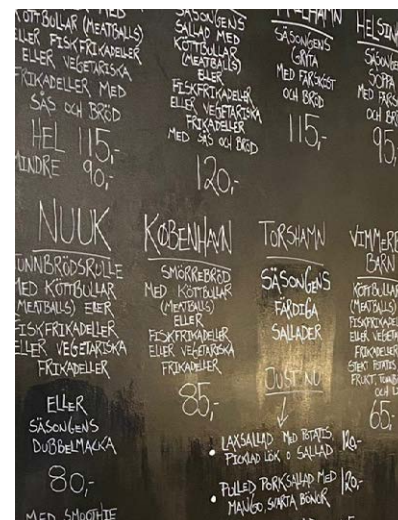 KÖTTBULLAR MED
(MEATBALLS)
ELLER FISKFRIKADELLER
ELLER VEGETARISKA
FRIKADELLER MED
SÅS OCH BRÖD
HEL 115,-
MINDRE 90,-
SÄSONGENS
SALLAD MED
KÖTTBULLAR
(MEATBALLS)
ELLER
FISKFRIKADELLER
ELLER VEGETARISKA
FRIKADELLER
MED SÅS OCH BRÖD
120,-
SÄSONGENS
GRYTA
MED FÄRSKOST
OCH BRÖD
115,-
HELSIN
SÄSONGE
SOPPA
MED FÄRS
OCH BR
95,
NUUK
TUNNBRÖDSRULLE
MED KÖTTBULLAR
(MEATBALLS) ELLER
FISKFRIKADELLER
ELLER VEGETARISKA
FRIKADELLER
ELLER
SÄSONGENS
DUBBELMACKA
80,-
MED SMOOTHIE
KØBENHAVN
SMÖRREBRÖD
MED KÖTTBULLAR
(MEATBALLS)
ELLER
FISKFRIKADELLER
ELLER VEGETARISKA
FRIKADELLER
85,-
TORSHAMN
SÄSONGENS
FÄRDIGA
SALLADER
JUST NU
• LAXSALLAD MED POTATIS, 120,-
PICKLAD LÖK O SALLAD
• PULLED PORKSALLAD MED 120,-
MANGO, SVARTA BÖNOR
VIMMERB
BARN
KÖTTBULLAR
(MEATBALLS)
FISKFRIKADEL
ELLER VEGETA
FRIKADELLER
STEKT POTATIS
FRUKT,
65,-